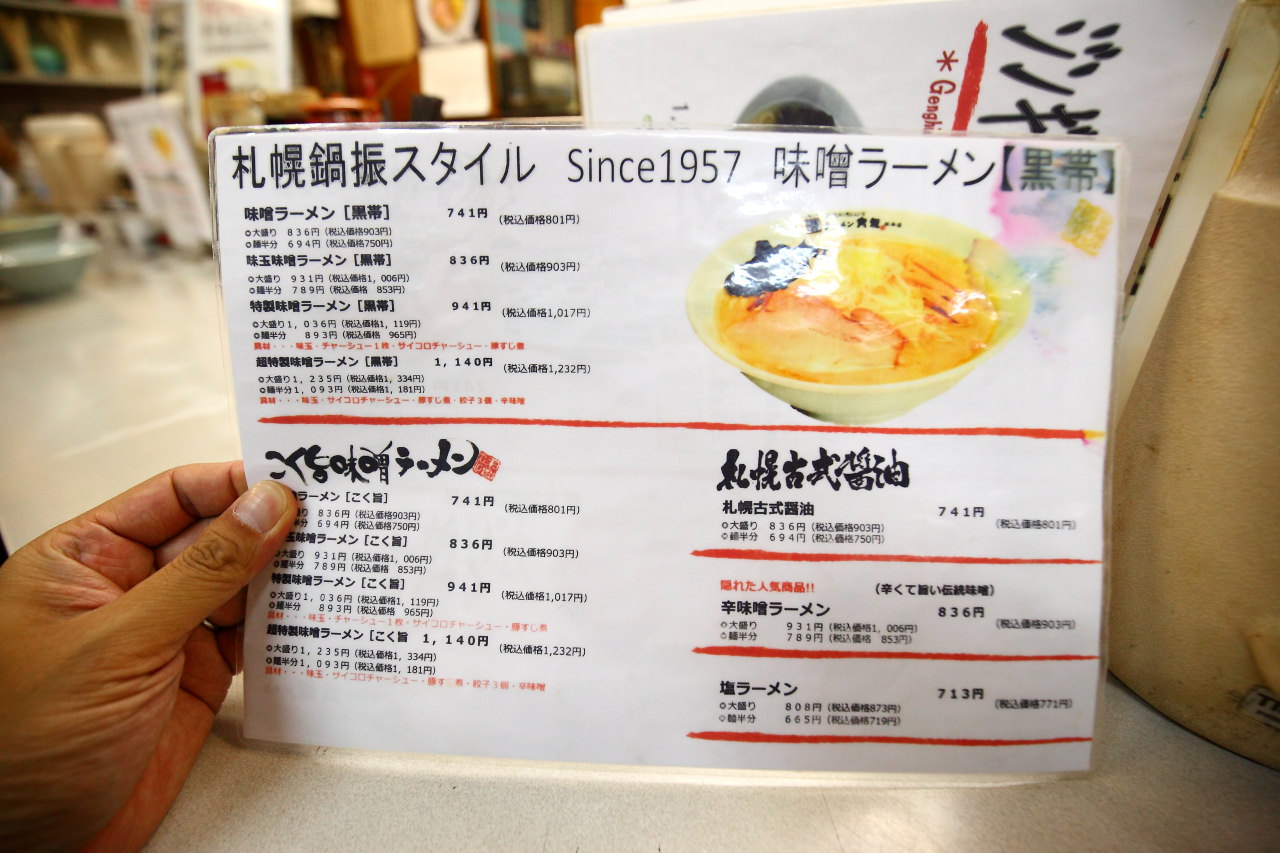 ジンギ
* Genghi
札幌鍋振スタイル Since1957 味噌ラーメン【黒帯】
味噌ラーメン［黒帯］ 741円 (税込価格801円)
◎大盛り 836円 (税込価格903円)
◎麺半分 694円 (税込価格750円)
味玉味噌ラーメン［黒帯］ 836円 (税込価格903円)
◎大盛り 931円 (税込価格1,006円)
◎麺半分 789円 (税込価格 853円)
特製味噌ラーメン［黒帯］ 941円 (税込価格1,017円)
◎大盛り1,036円 (税込価格1,119円)
◎麺半分 893円 (税込価格 965円)
具材・・・味玉・チャーシュー1枚・サイコロチャーシュー・豚すじ煮
超特製味噌ラーメン［黒帯］ 1,140円 (税込価格1,232円)
◎大盛り1,235円 (税込価格1,334円)
◎麺半分1,093円 (税込価格1,181円)
具材・・・味玉・サイコロチャーシュー・豚すじ煮・餃子3個・辛味噌
こく旨味噌ラーメン
ラーメン［こく旨］ 741円 (税込価格801円)
盛り 836円 (税込価格903円)
麺半分 694円 (税込価格750円)
玉味噌ラーメン［こく旨］ 836円 (税込価格903円)
大盛り 931円 (税込価格1,006円)
◎麺半分 789円 (税込価格 853円)
特製味噌ラーメン［こく旨］ 941円 (税込価格1,017円)
◎大盛り1,036円 (税込価格1,119円)
◎麺半分 893円 (税込価格 965円)
具材・・・味玉・チャーシュー1枚・サイコロチャーシュー・豚すじ煮
超特製味噌ラーメン［こく旨 1,140円 (税込価格1,232円)
◎大盛り1,235円 (税込価格1,334円)
◎麺半分1,093円 (税込価格1,181円)
具材・・・味玉・サイコロチャーシュー・豚すじ煮・餃子3個・辛味噌
札幌古式醤油
札幌古式醤油 741円 (税込価格801円)
◎大盛り 836円 (税込価格903円)
◎麺半分 694円 (税込価格750円)
隠れた人気商品!! (辛くて旨い伝統味噌)
辛味噌ラーメン 836円 (税込価格903円)
◎大盛り 931円 (税込価格1,006円)
◎麺半分 789円 (税込価格 853円)
塩ラーメン 713円 (税込価格771円)
◎大盛り 808円 (税込価格873円)
◎麺半分 665円 (税込価格719円)